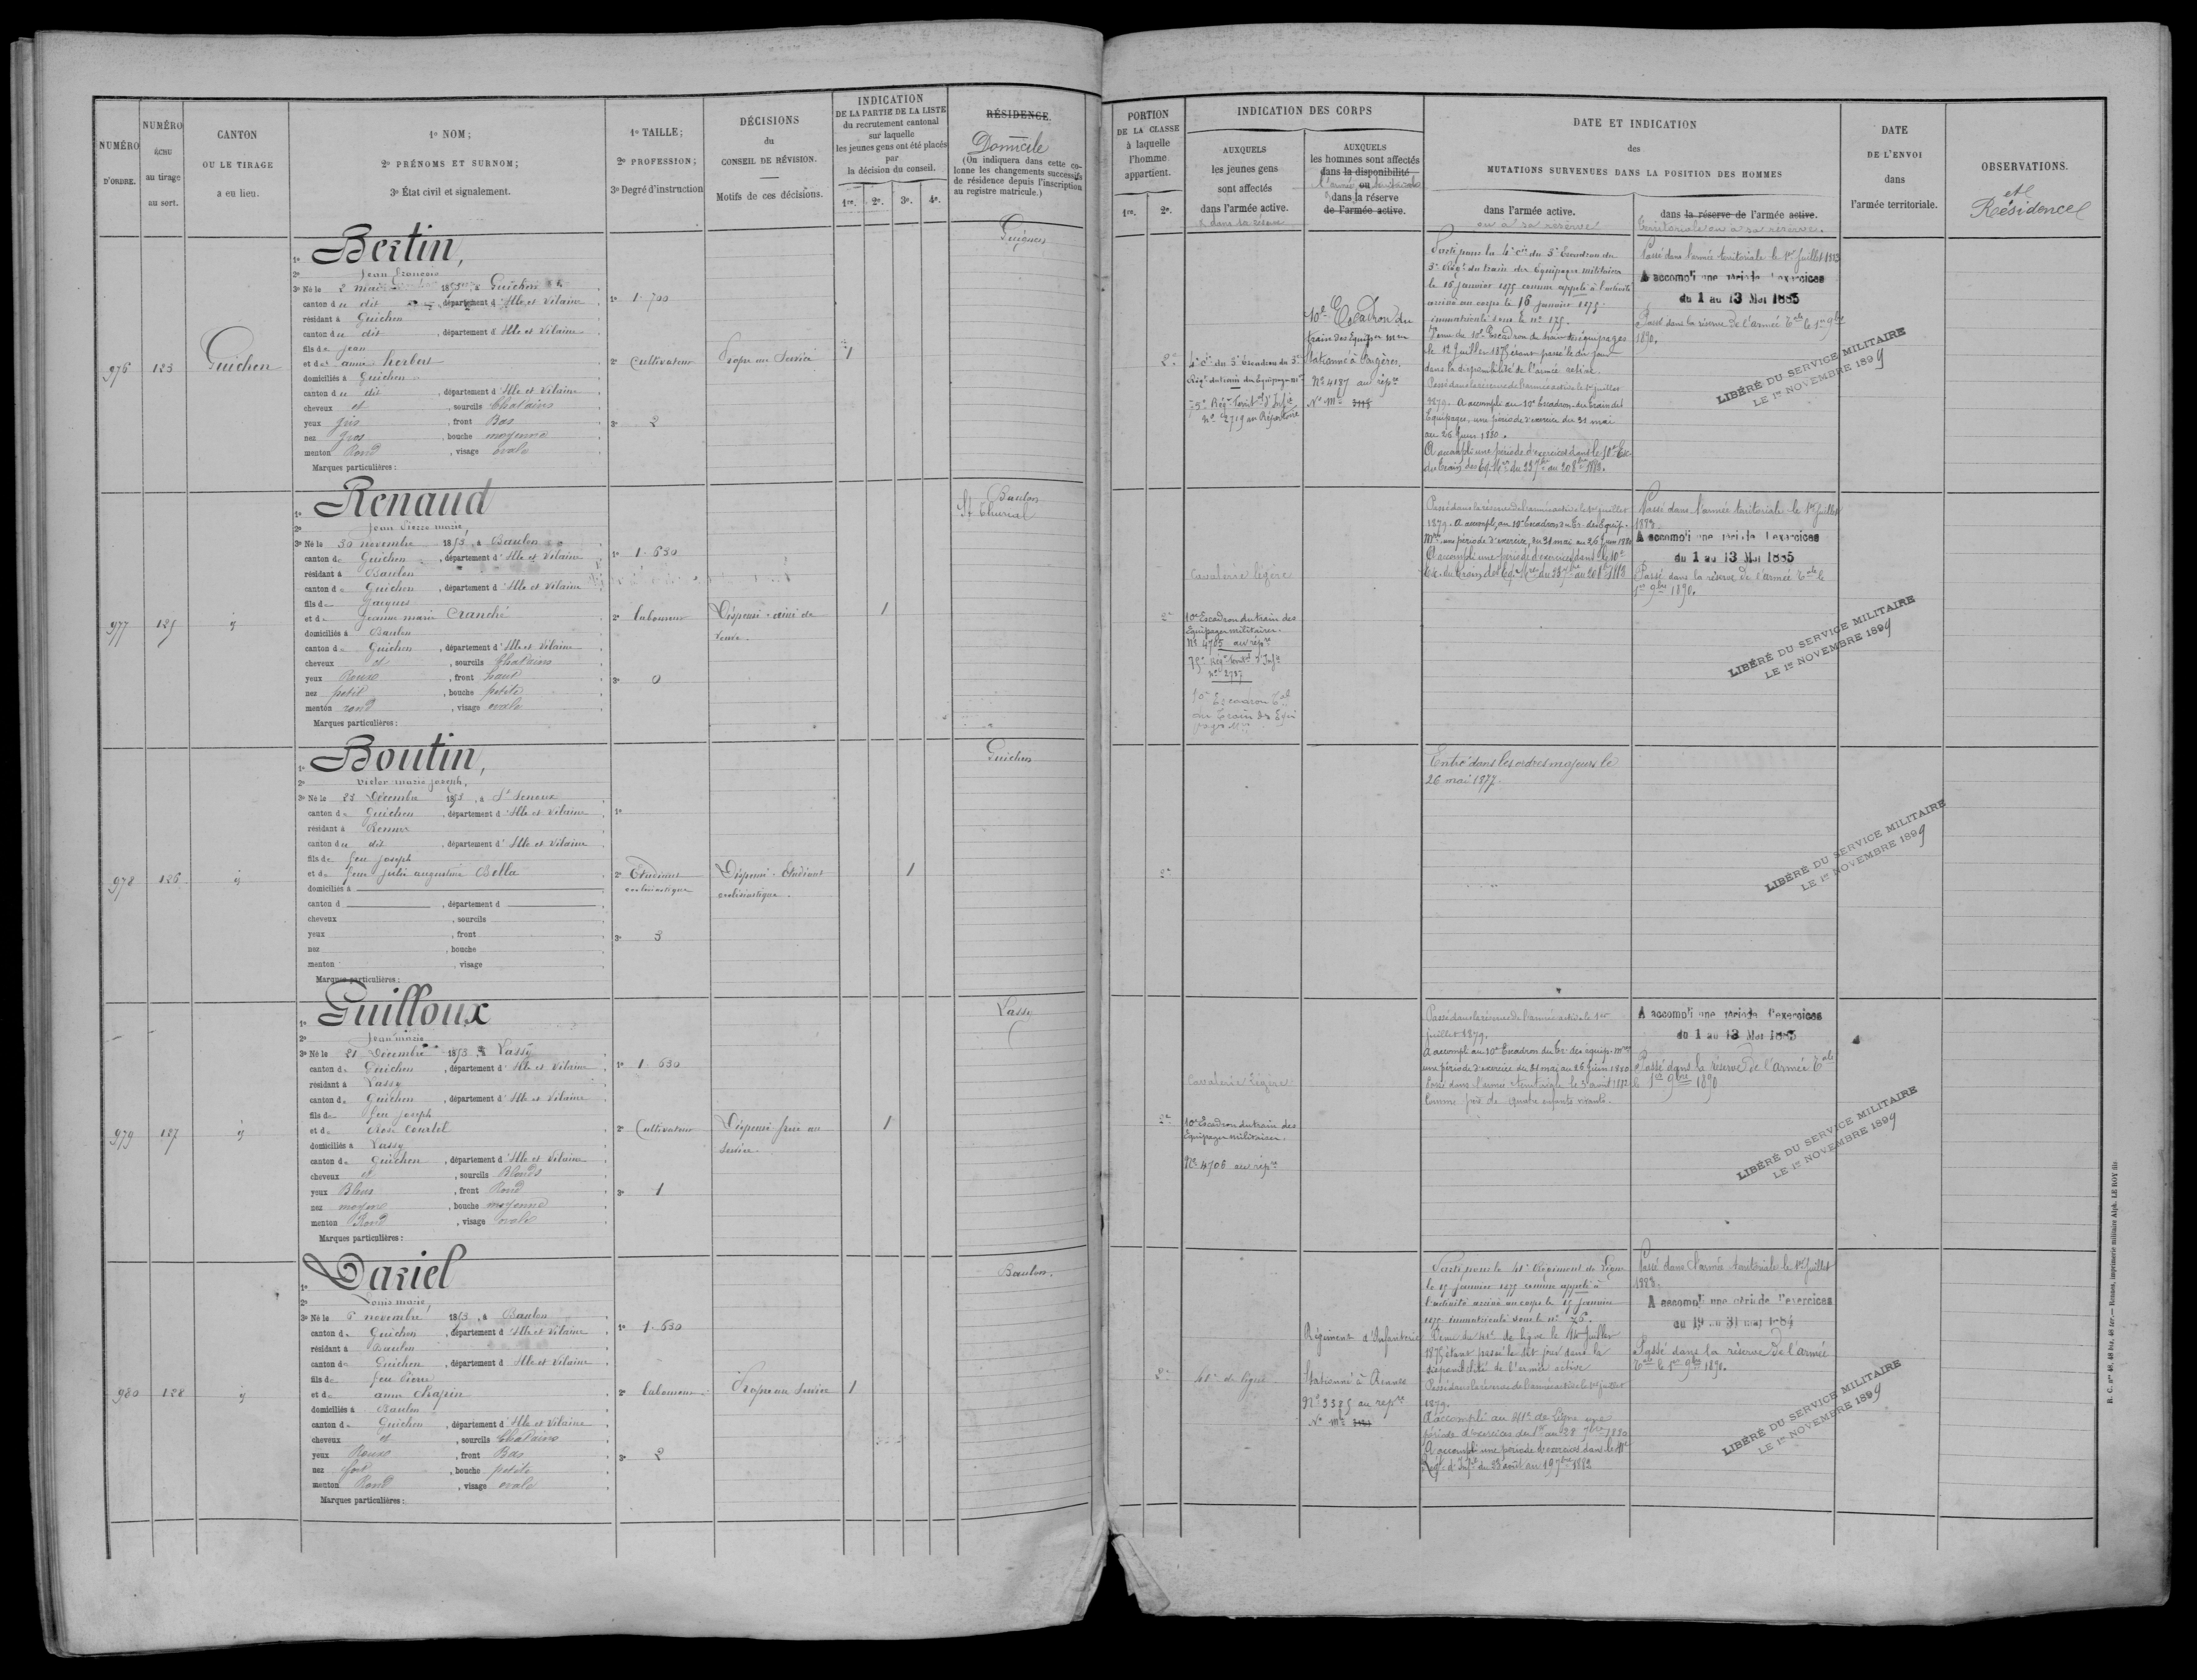 NUMÉRO
D'ORDRE.
NUMÉRO
ÉCHU
au tirage
au sort.
CANTON
OU LE TIRAGE
a eu lieu.
1º NOM;
2º PRÉNOMS ET SURNOM;
3º État civil et signalement.
1º TAILLE;
2º PROFESSION;
3º Degré d'instruction
DÉCISIONS
du
CONSEIL DE RÉVISION.
Motifs de ces décisions.
INDICATION
DE LA PARTIE DE LA LISTE
du recrutement cantonal
sur laquelle
les jeunes gens ont été placés
par
la décision du conseil.
1re. 2e. 3e. 4e.
RÉSIDENCE.
Domicile
(On indiquera dans cette co-
lonne les changements successifs
de résidence depuis l'inscription
au registre matricule.)
PORTION
DE LA CLASSE
à laquelle
l'homme
appartient.
1re. 2e.
INDICATION DES CORPS
AUXQUELS
les jeunes gens
sont affectés
dans l'armée active.
& dans sa réserve
AUXQUELS
les hommes sont affectés
dans la disponibilité
ou
dans la réserve
de l'armée active.
DATE ET INDICATION
des
MUTATIONS SURVENUES DANS LA POSITION DES HOMMES
dans l'armée active.
ou à sa réserve
dans la réserve de l'armée active.
territoriale ou à sa réserve.
DATE
DE L'ENVOI
dans
l'armée territoriale.
OBSERVATIONS.
et
Résidence
976
123
Guichen
1º Bertin,
2º Jean François
3º Né le 2 mai 1853, à Guichen
canton du dit, département d'Ille et Vilaine
résidant à Guichen
canton du dit, département d'Ille et Vilaine
fils de Jean
et de anne herbert
domiciliés à Guichen
canton du dit, département d'Ille et Vilaine
cheveux et, sourcils Chatains
yeux gris, front Bas
nez gros, bouche moyenne
menton Rond, visage ovale
Marques particulières :
1º 1.700
2º Cultivateur
3º 2
Propre au Service
1
Guignen
2e
4e Cie du 3e Escadron du 3e
Régt du train des Equipages mres
75e Régt Territl d'Infie
nº 2719 au Répertoire
10e Escadron du
train des Equipes mres
Stationné à Fougères,
Nº 4187 au répre
Nº mle
Parti pour la 4e Cie du 3e Escadron du
3e Régt du train des Equipages militaires
le 16 janvier 1875 comme appelé à l'activité
arrivé au corps le 16 janvier 1875.
immatriculé sous le nº 175.
Venu du 10e Escadron du train des équipages
le 12 Juillet 1875 étant passé le dit jour
dans la disponibilité de l'armée active.
Passé dans la réserve de l'armée active le 1er juillet
1879. A accompli au 10e Escadron du train des
Equipages une période d'exercice du 31 mai
au 26 Juin 1880.
A accompli une période d'exercices dans le 10e Esc.
du train des Eq. Mres du 23 7bre au 20 8bre 1882.
Passé dans l'armée territoriale le 1er Juillet 1883
A accompli une période d'exercices
du 1 au 13 Mai 1885
Passé dans la réserve de l'armée Tale le 1er 9bre
1890.
LIBÉRÉ DU SERVICE MILITAIRE
LE 1er NOVEMBRE 1899
977
125
id
1º Renaud
2º Jean Pierre marie,
3º Né le 30 novembre 1853, à Baulon
canton de Guichen, département d'Ille et Vilaine
résidant à Baulon
canton de Guichen, département d'Ille et Vilaine
fils de Jacques
et de Jeanne marie
domiciliés à Baulon
canton de Guichen, département d'Ille et Vilaine
cheveux et, sourcils Chatains
yeux Roux, front haut
nez petit, bouche petite
menton rond, visage ovale
Marques particulières :
1º 1.630
2º Laboureur
3º 0
Dispensé - aîné de
veuve.
1
Baulon
St Thurial
2e
Cavalerie légère
10e Escadron du train des
Equipages militaires.
Nº 4705 au répre
75e Régt Territl d'Infie
nº 2737
10e Escadron Tal
du Train des Equi
pages Mres
Passé dans la réserve de l'armée active le 1er juillet
1879. A accompli au 10e Escadron du Tr. des Equip.
Mres une période d'exercice, du 31 mai au 26 Juin 1880
A accompli une période d'exercices dans le 10e
Esc. du train des Eq. Mres du 23 7bre au 20 8bre 1882
Passé dans l'armée territoriale le 1er Juillet
1883.
A accompli une période d'exercices
du 1 au 13 Mai 1885
Passé dans la réserve de l'armée Tale le
1er 9bre 1890.
LIBÉRÉ DU SERVICE MILITAIRE
LE 1er NOVEMBRE 1899
978
126
id
1º Boutin,
2º Victor marie joseph,
3º Né le 23 Décembre 1853, à St Senoux
canton de Guichen, département d'Ille et Vilaine
résidant à Rennes
canton du dit, département d'Ille et Vilaine
fils de feu joseph
et de feue julie augustine
domiciliés à
canton d, département d
cheveux, sourcils
yeux, front
nez, bouche
menton, visage
Marques particulières :
1º
2º Etudiant
ecclésiastique
3º 3
Dispensé. Etudiant
ecclésiastique.
1
Guichen
2e
Entré dans les ordres majeurs le
26 mai 1877.
LIBÉRÉ DU SERVICE MILITAIRE
LE 1er NOVEMBRE 1899
979
127
id
1º Guilloux
2º Jean marie
3º Né le 21 Décembre 1853, à Lassy
canton de Guichen, département d'Ille et Vilaine
résidant à Lassy
canton de Guichen, département d'Ille et Vilaine
fils de feu joseph
et de Rose Courtel
domiciliés à Lassy
canton de Guichen, département d'Ille et Vilaine
cheveux et, sourcils Blonds
yeux Bleus, front Rond
nez moyen, bouche moyenne
menton Rond, visage ovale
Marques particulières :
1º 1.630
2º Cultivateur
3º 1
Dispensé frère au
Service.
1
Lassy
2e
Cavalerie légère
10e Escadron du train des
Equipages militaires.
Nº 4706 au répre
Passé dans la réserve de l'armée active le 1er
juillet 1879.
A accompli au 10e Escadron du Tr. des équip. mres
une période d'exercice du 31 mai au 26 Juin 1880
Passé dans l'armée territoriale le 3 août 1882
comme père de quatre enfants vivants.
A accompli une période d'exercices
du 1 au 13 Mai 1885
Passé dans la réserve de l'armée Tale
le 1er 9bre 1890
LIBÉRÉ DU SERVICE MILITAIRE
LE 1er NOVEMBRE 1899
980
128
id
1º Dariel
2º Louis marie,
3º Né le 6 novembre 1853, à Baulon
canton de Guichen, département d'Ille et Vilaine
résidant à Baulon
canton de Guichen, département d'Ille et Vilaine
fils de feu Pierre
et de anne chapin
domiciliés à Baulon
canton de Guichen, département d'Ille et Vilaine
cheveux et, sourcils Chatains
yeux Roux, front Bas
nez fort, bouche petite
menton Rond, visage ovale
Marques particulières :
1º 1.630
2º Laboureur
3º 2
Propre au Service
1
Baulon.
2e
41e de ligne
Régiment d'Infanterie
Stationné à Rennes
Nº 3385 au répre
Nº mle
Parti pour le 41e Régiment de Ligne
le 17 janvier 1875 comme appelé à
l'activité arrivé au corps le 17 janvier
1875 immatriculé sous le nº 76.
Venu du 41e de ligne le 14 Juillet
1875 étant passé le dit jour dans la
disponibilité de l'armée active
Passé dans la réserve de l'armée active le 1er juillet
1879.
A accompli au 41e de ligne une
période d'exercices du 1er au 28 7bre 1880
A accompli une période d'exercices dans le 41e
Régt d'Infie du 23 août au 19 7bre 1882
Passé dans l'armée territoriale le 1er Juillet
1883.
A accompli une période d'exercices
du 19 au 31 mai 1884
Passé dans la réserve de l'armée
Tale le 1er 9bre 1890.
LIBÉRÉ DU SERVICE MILITAIRE
LE 1er NOVEMBRE 1899
R. C. nos 48, 48 bis, 48 ter. — Rennes, imprimerie militaire Alph. LE ROY fils